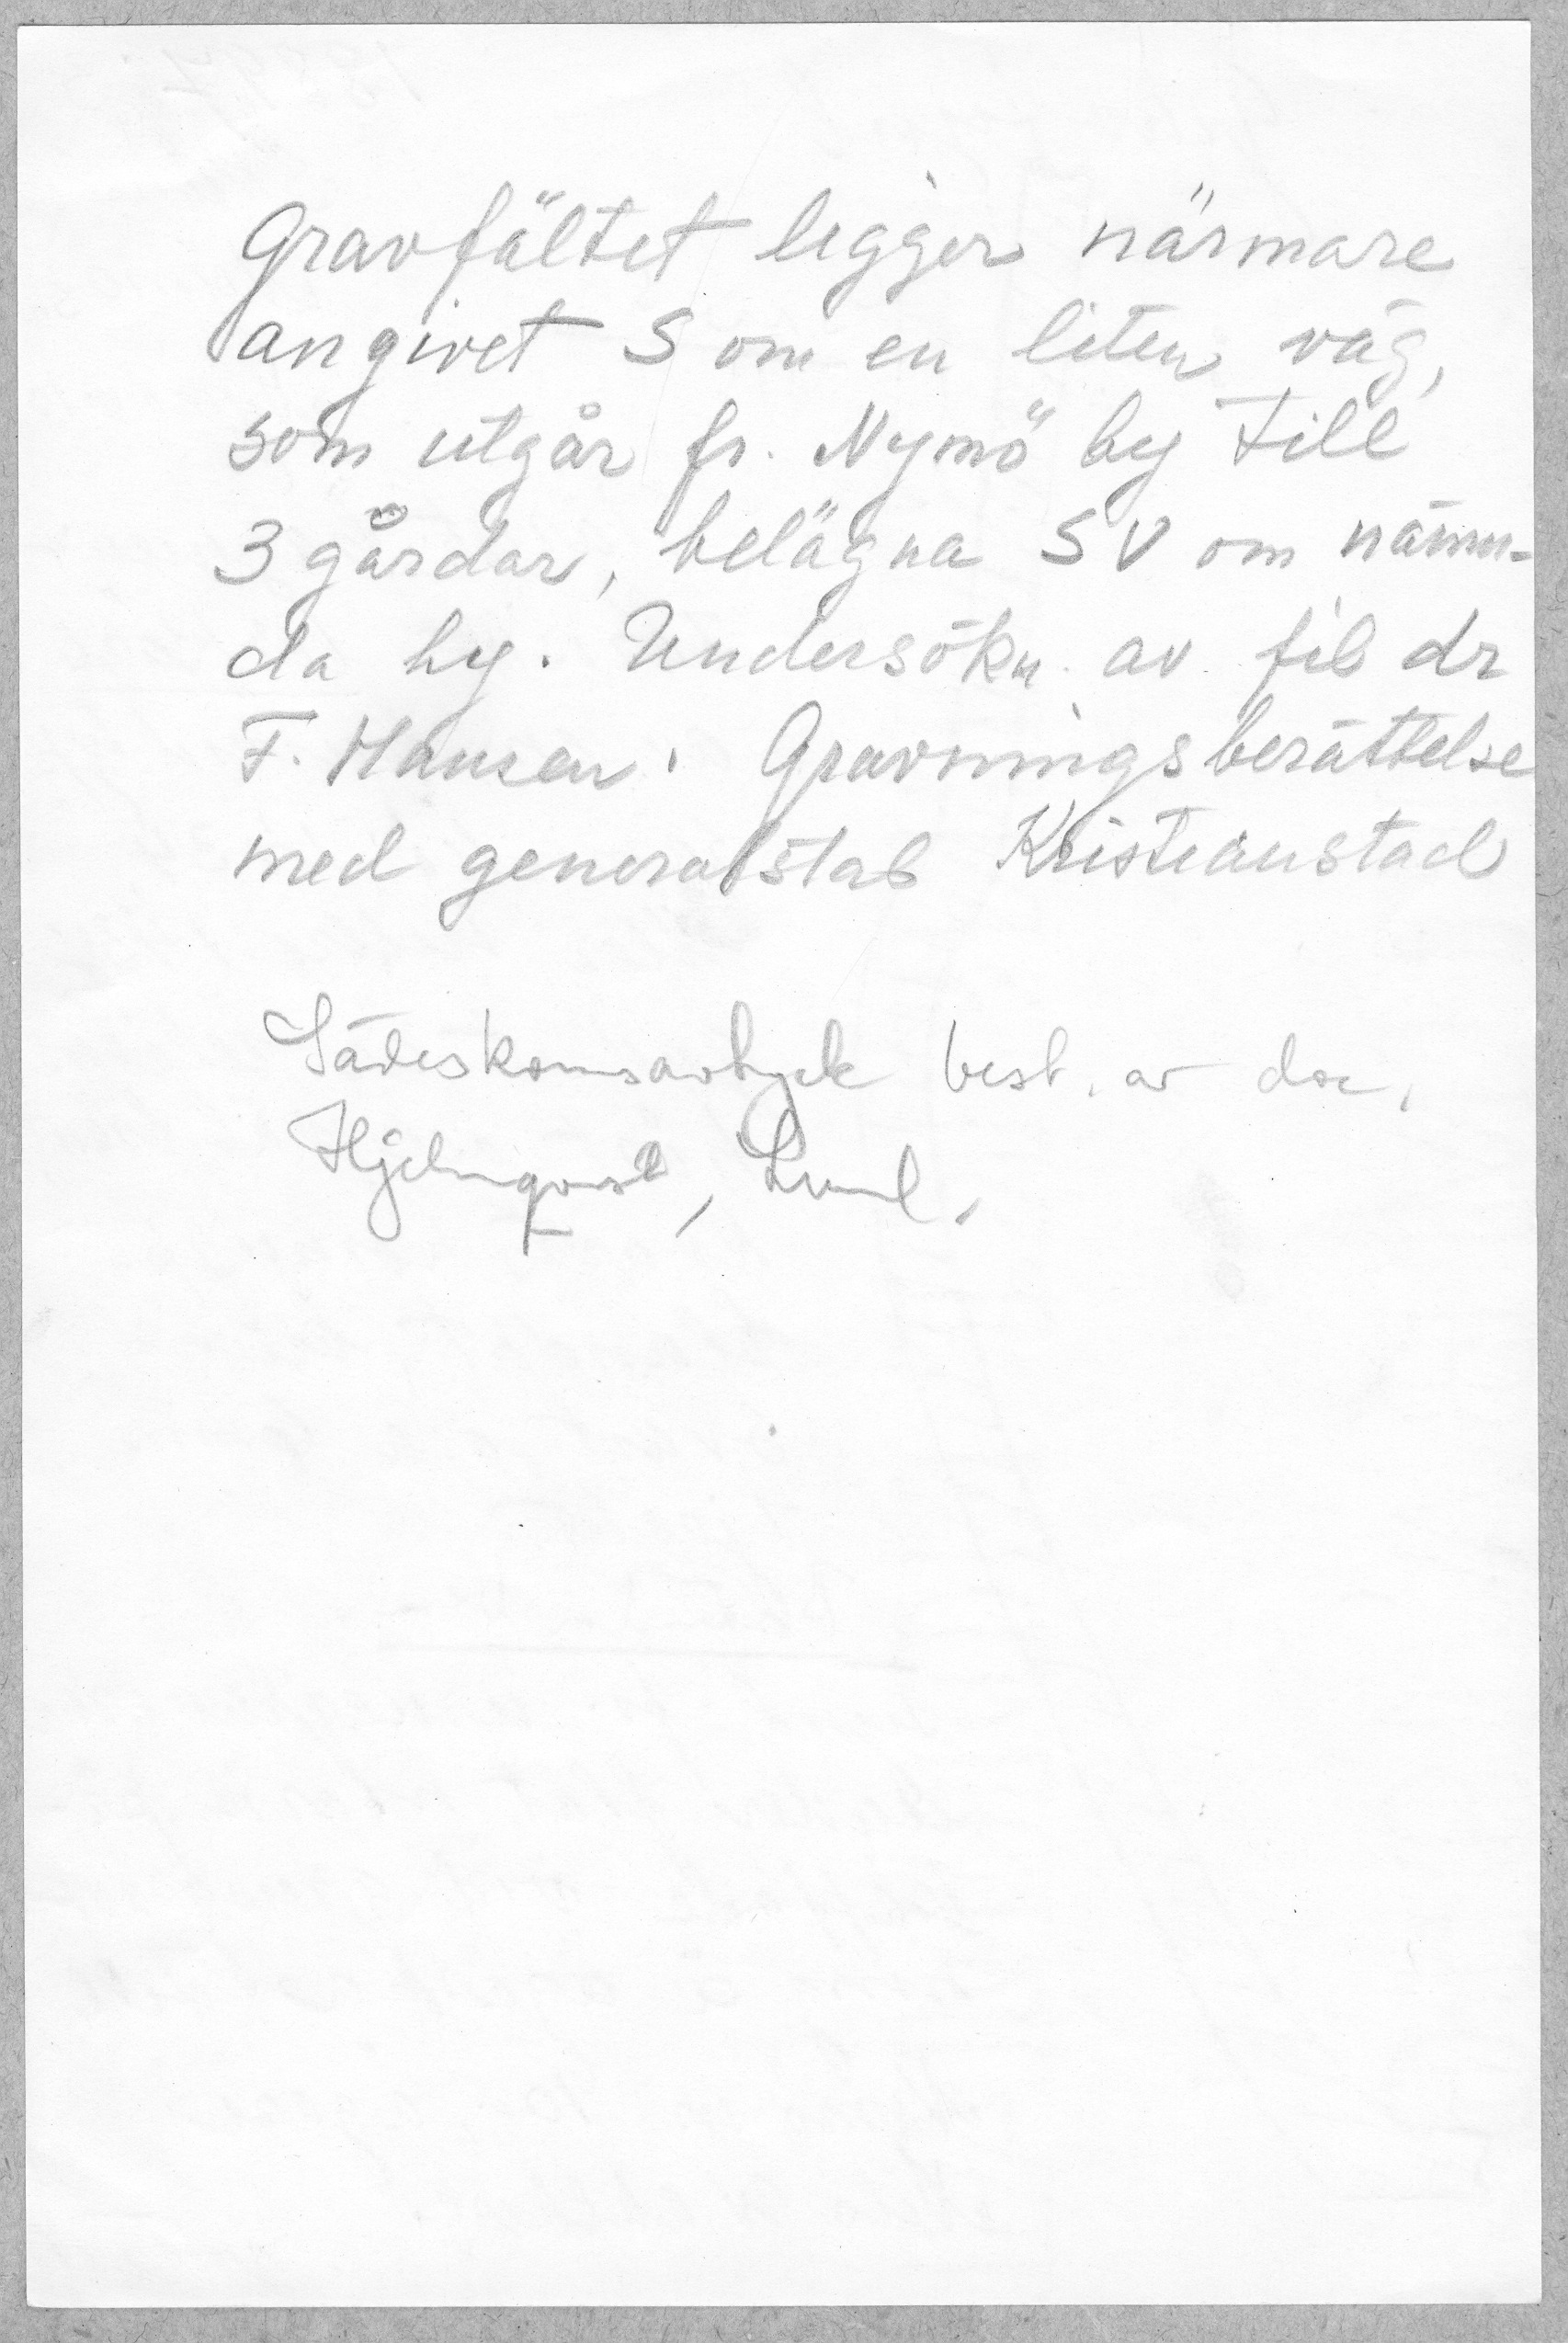 Gravfältet ligger närmare
angivet S om en liten väg,
som utgår fr. Nymö by till
3 gårdar, belägna SV om nämn-
da by. Undersökn. av fil dr
F. Hansen. Gravningsberättelse
med generalstab Kristianstad
Sädeskornsavtryck best. av doc.
Hjelmqvist, Lund.